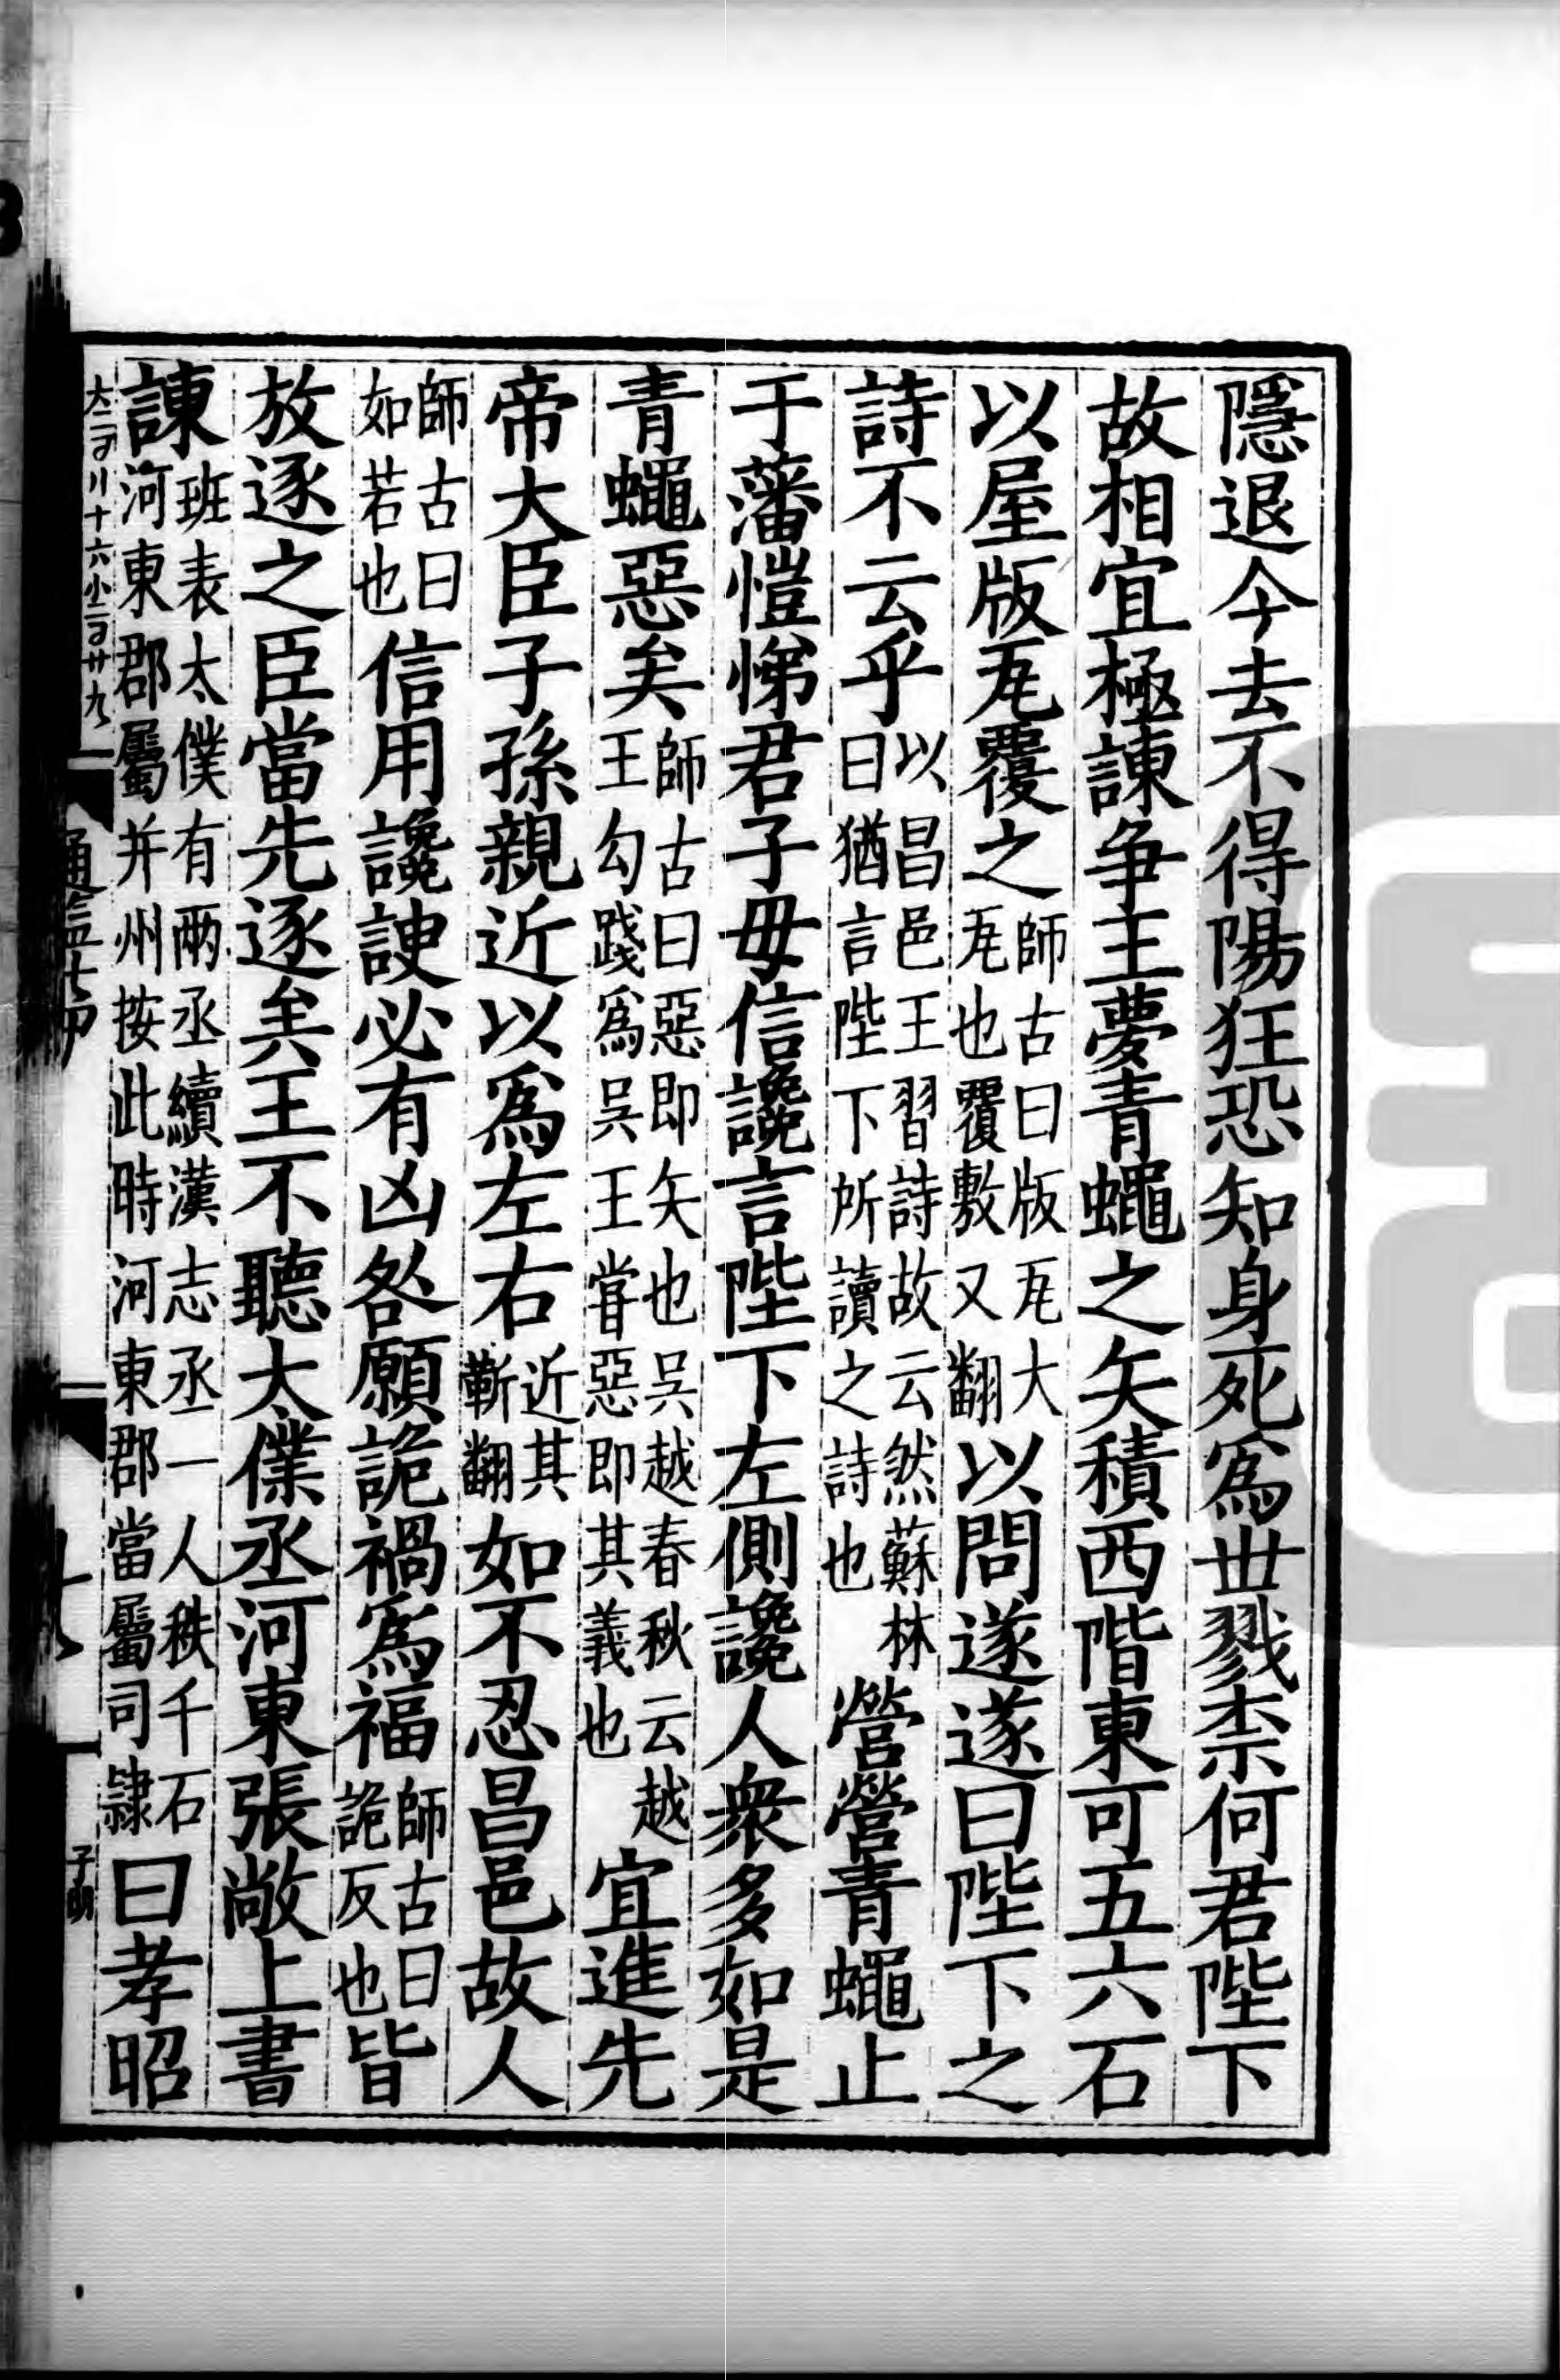 隱退今去不得陽狂恐知身死爲丗戮柰何君陛下
故相宜極諫争王夢青蠅之矢積西階東可五六石
以屋版瓦覆之師古曰版瓦大瓦也覆敷又翻以問遂遂曰陛下之
詩不云乎以昌邑王習詩故云然蘇林曰猶言陛下所讀之詩也營營青蠅止
于藩愷悌君子毋信讒言陛下左側讒人衆多如是
青蠅惡矣師古曰惡即矢也吳越春秋云越王勾踐爲吳王嘗惡即其義也宜進先
帝大臣子孫親近以爲左右近其靳翻如不忍昌邑故人
師古曰如若也信用讒諛必有凶咎願詭禍爲福師古曰詭反也皆
放逐之臣當先逐矣王不聽太僕丞河東張敞上書
諫班表太僕有兩丞續漢志丞一人秩千石河東郡屬并州按此時河東郡當屬司隷曰孝昭
子明